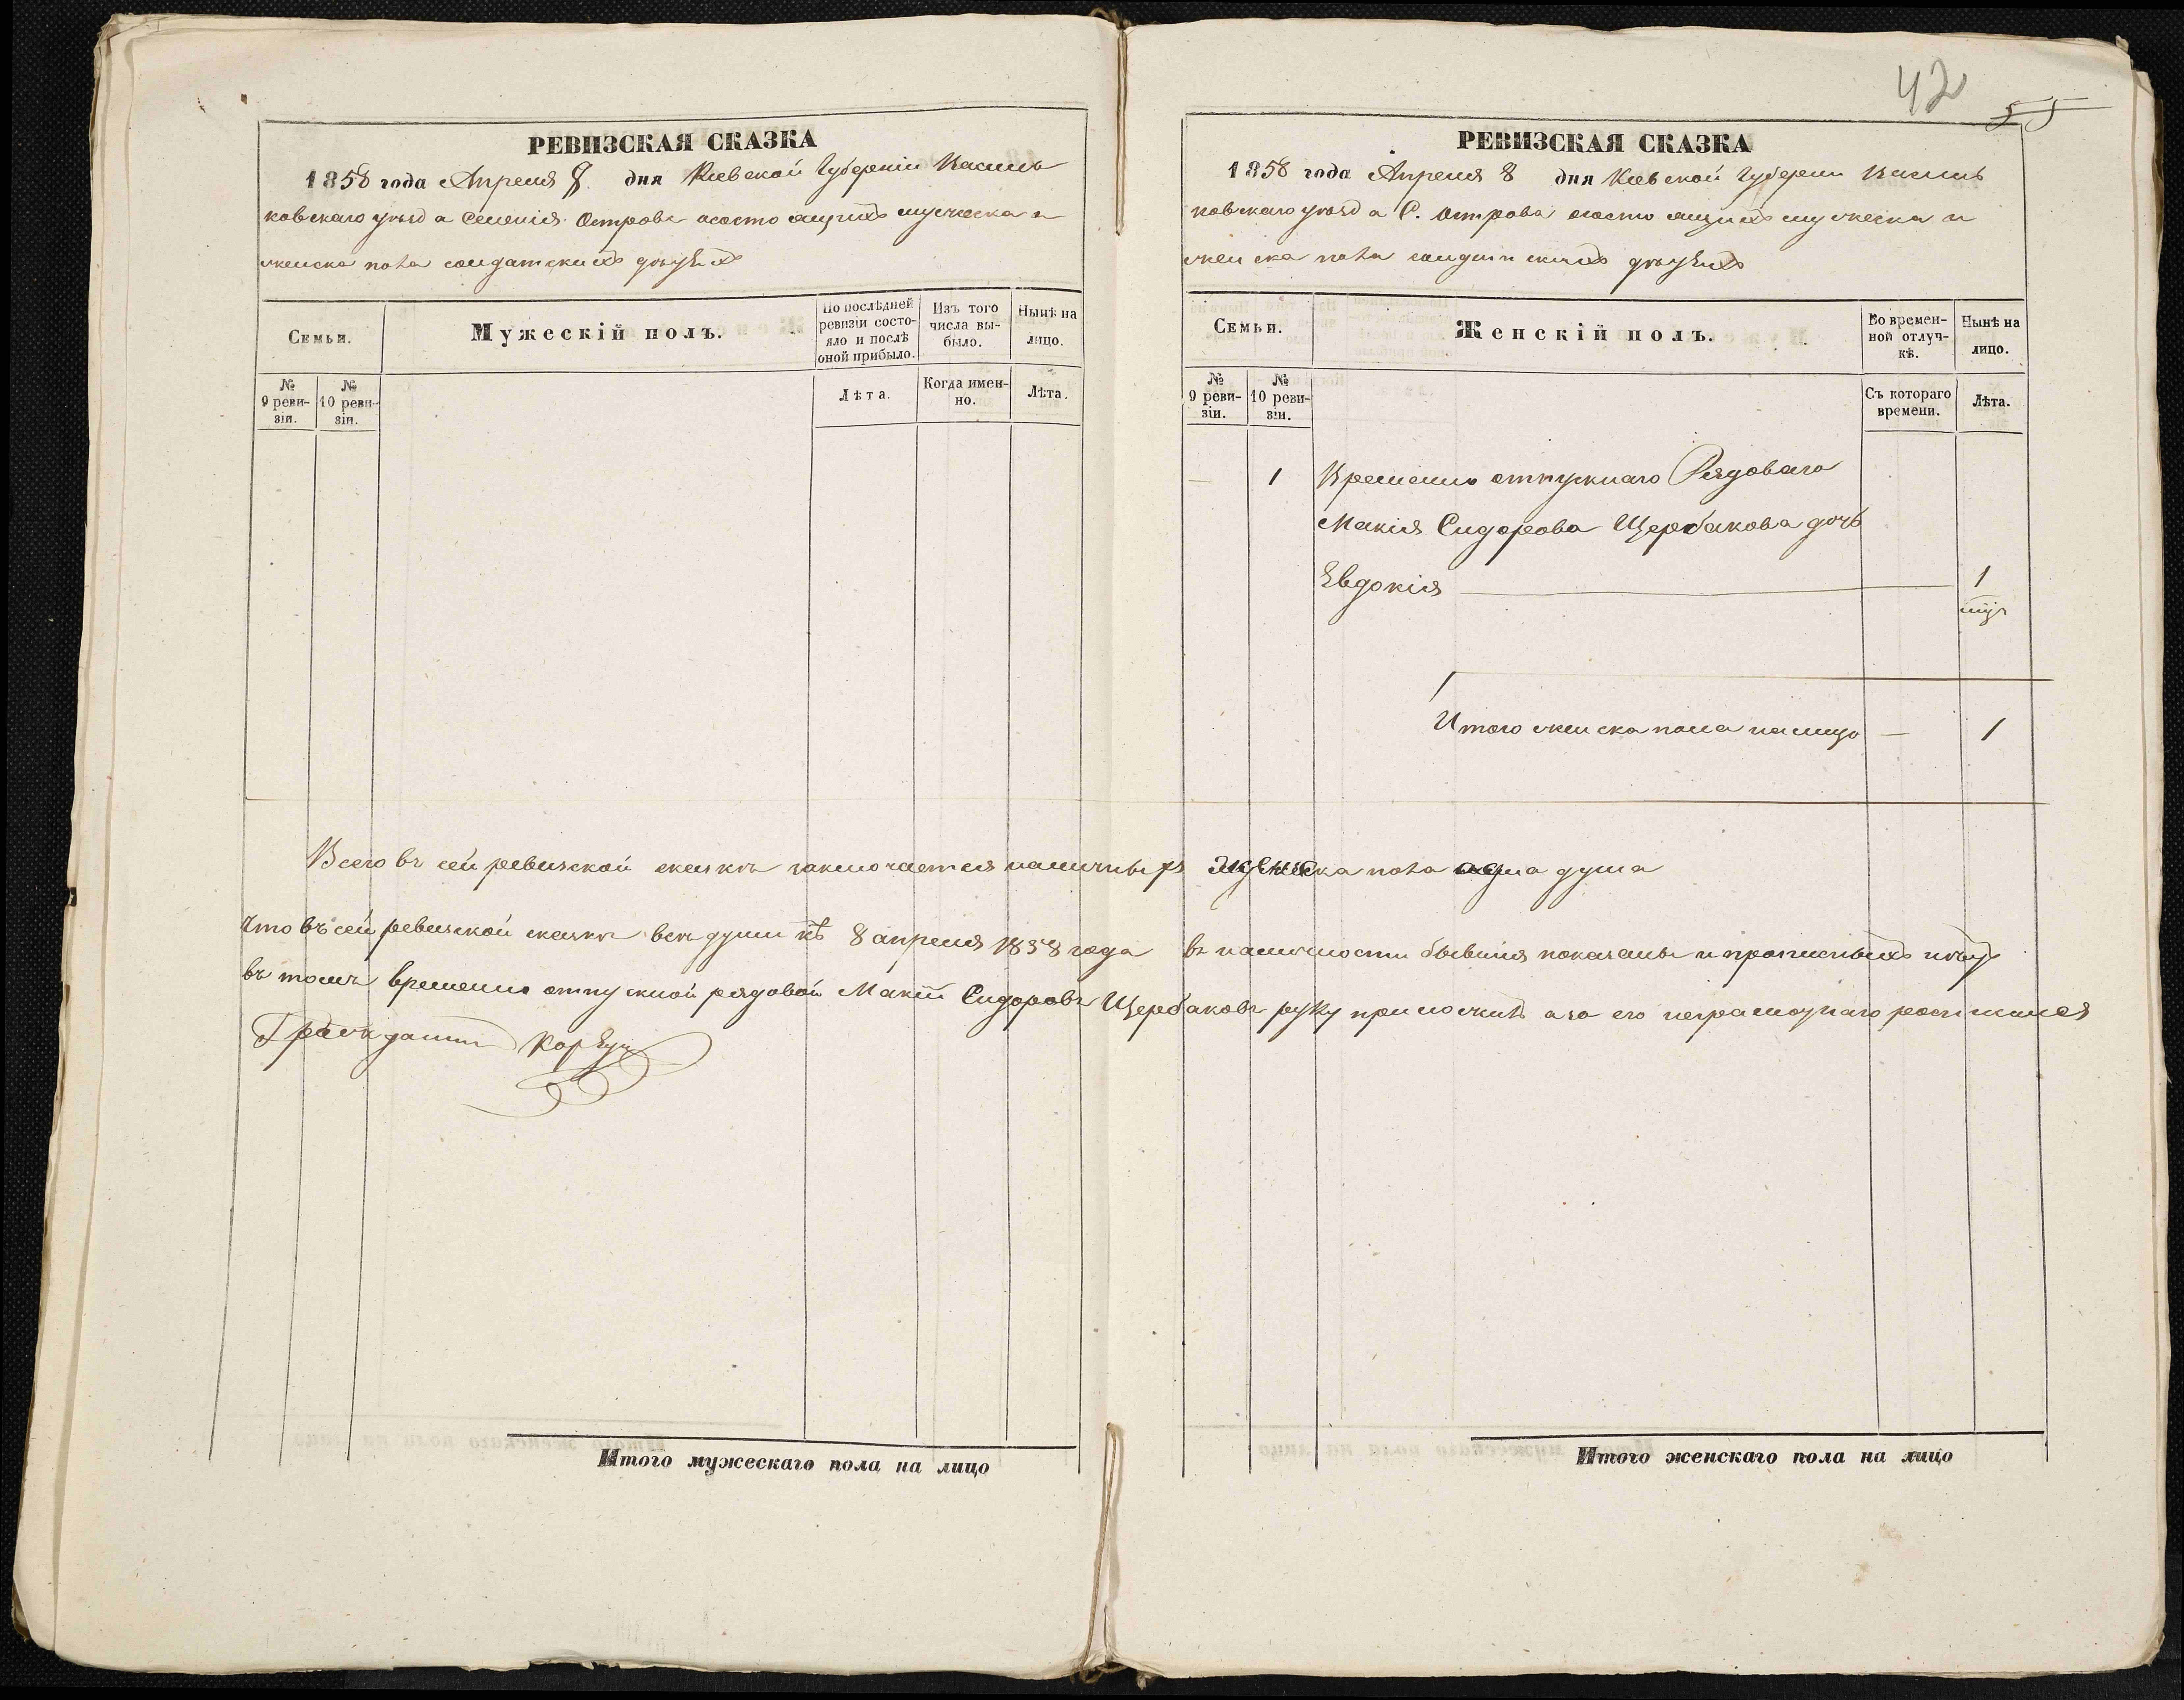 РЕВИЗСКАЯ СКАЗКА
1858 года Апреля 8 дня Киевской Губерніи Василь
ковскаго уѣзда Селенія Острова о состоящихъ мужеска и
женска пола солдатскихъ дѣтяхъ
Семьи.
Мужескій полъ.
По послѣдней ревизіи состояло и послѣ оной прибыло.
Изъ того числа выбыло.
Нынѣ на лицо.
№ 9 ревизіи.
№ 10 ревизіи.
Лѣта.
Когда именно.
Лѣта.
Всего въ сей ревизской сказкѣ заключается наличныхъ
Что въ сей ревизской сказкѣ всѣ души къ 8 апреля 1858 года
въ томъ временно отпускной рядовой Макій Сидоровъ
Гражданин
Итого мужескаго пола на лицо
42
55
РЕВИЗСКАЯ СКАЗКА
1858 года Апреля 8 дня Киевской Губерни Василь
ковскаго уѣзда С. Острова о состоящихъ мужеска и
женска пола солдатскихъ дѣтяхъ
Семьи.
Женскій полъ.
Во временной отлучкѣ.
Нынѣ на лицо.
№ 9 ревизіи.
№ 10 ревизіи.
Съ котораго времени.
Лѣта.
— 1 Временно отпускнаго Рядоваго
Макія Сидорова Щербакова дочь
Евдокія — 1
Итого женска пола налицо — 1
женска пола одна душа
въ наличности бывшія показаны и прописныхъ нѣтъ
Щербаковъ руку приложилъ а за его неграмотнаго росписался
Итого женскаго пола на лицо